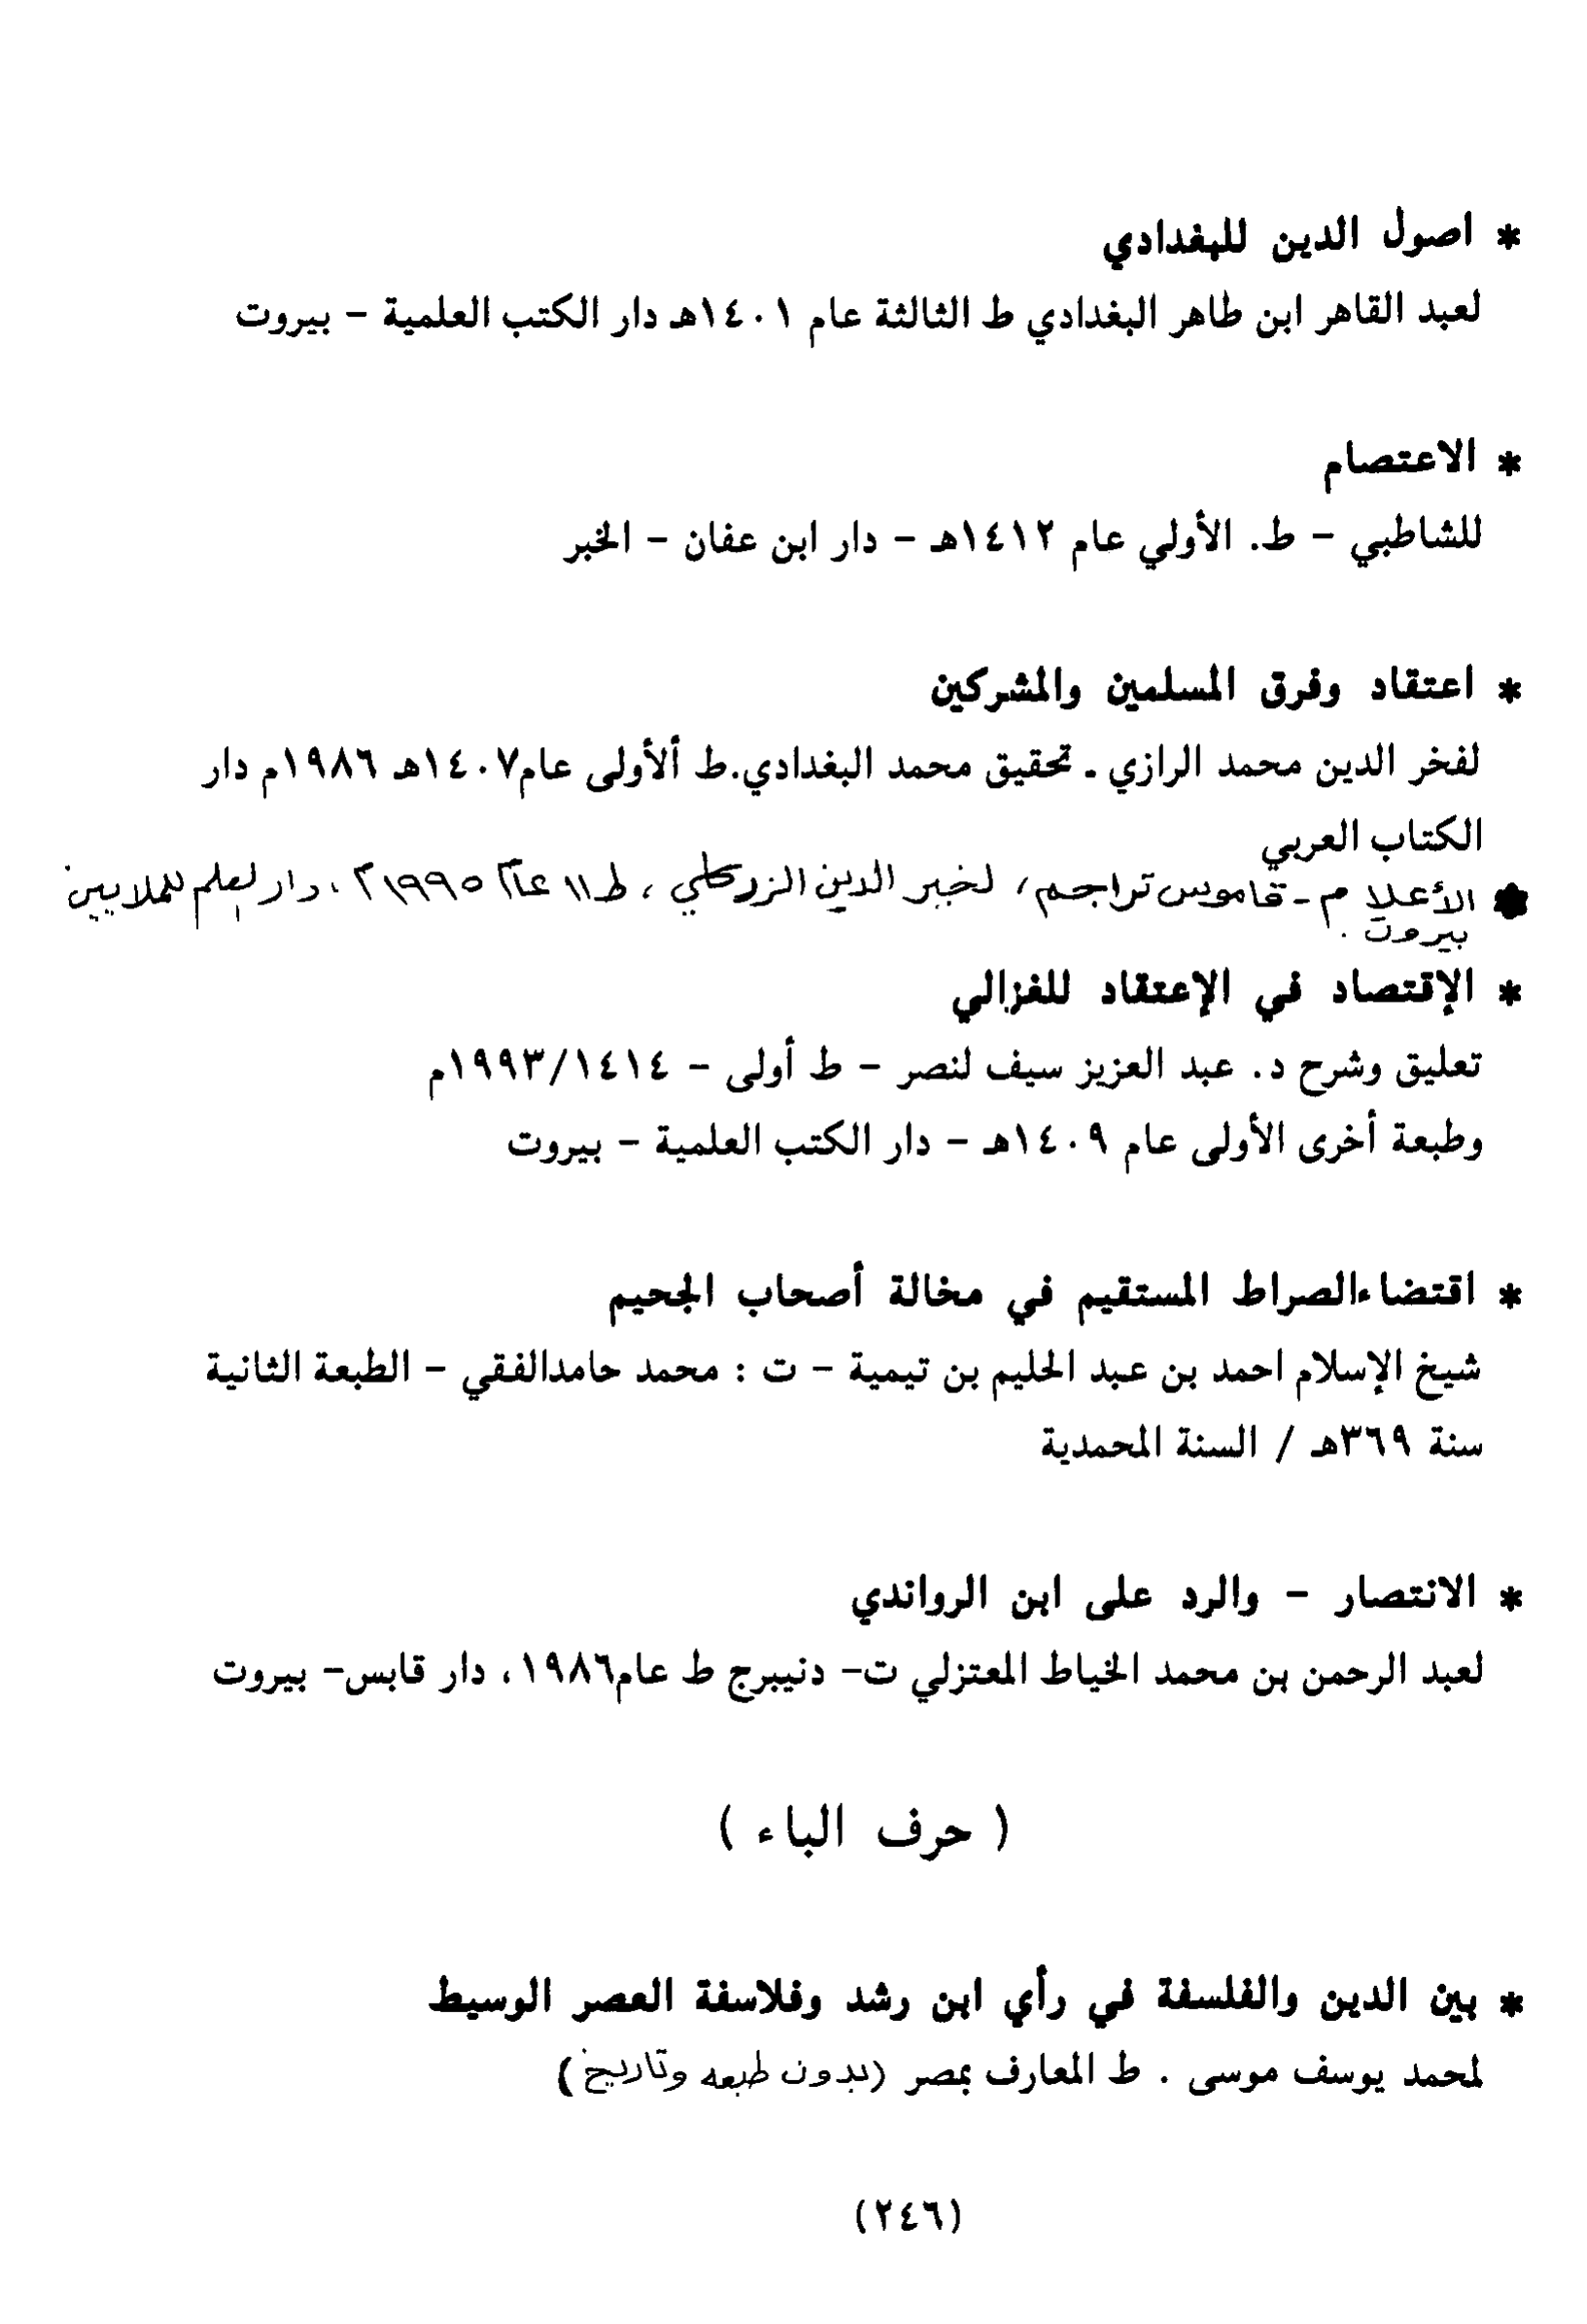 * اصول الدين للبغدادي
لعبد القاهر ابن طاهر البغدادي ط الثالثة عام ١٤٠١هـ دار الكتب العلمية – بيروت
* الاعتصام
للشاطبي – ط. الأولي عام ١٤١٢هـ – دار ابن عفان – الخبر
* اعتقاد وفرق المسلمين والمشركين
لفخر الدين محمد الرازي ـ تحقيق محمد البغدادي.ط ألأولى عام١٤٠٧هـ ١٩٨٦م دار
الكتاب العربي
* الأعلام - قاموس تراجم، لخير الدين الزركلي، ط ١١ عام ١٩٩٥م، دار العلم للملايين
بيروت .
* الإقتصاد في الإعتقاد للغزالي
تعليق وشرح د. عبد العزيز سيف لنصر – ط أولى – ١٩٩٣/١٤١٤م
وطبعة أخرى الأولى عام ١٤٠٩هـ – دار الكتب العلمية – بيروت
* اقتضاءالصراط المستقيم في مخالة أصحاب الجحيم
شيخ الإسلام احمد بن عبد الحليم بن تيمية – ت : محمد حامدالفقي – الطبعة الثانية
سنة ٣٦٩هـ / السنة المحمدية
* الانتصار – والرد على ابن الرواندي
لعبد الرحمن بن محمد الخياط المعتزلي ت– دنيبرج ط عام١٩٨٦، دار قابس– بيروت
( حرف الباء )
* بين الدين والفلسفة في رأي ابن رشد وفلاسفة العصر الوسيط
لمحمد يوسف موسى . ط المعارف بمصر (بدون طبعه وتاريخ)
(٢٤٦)